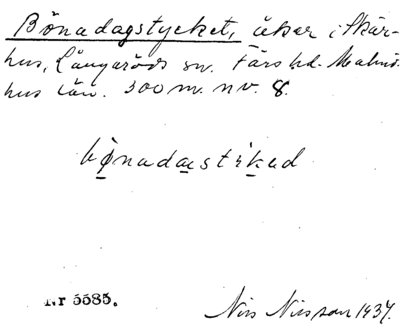 Bönadagstycket, åker i Skår-
hus, Långaröds sn. Färs hd. Malmö-
hus län. 300 m. n v. 8.
bönadastikad
Nr 5585.
Nils Nilsson 1937.